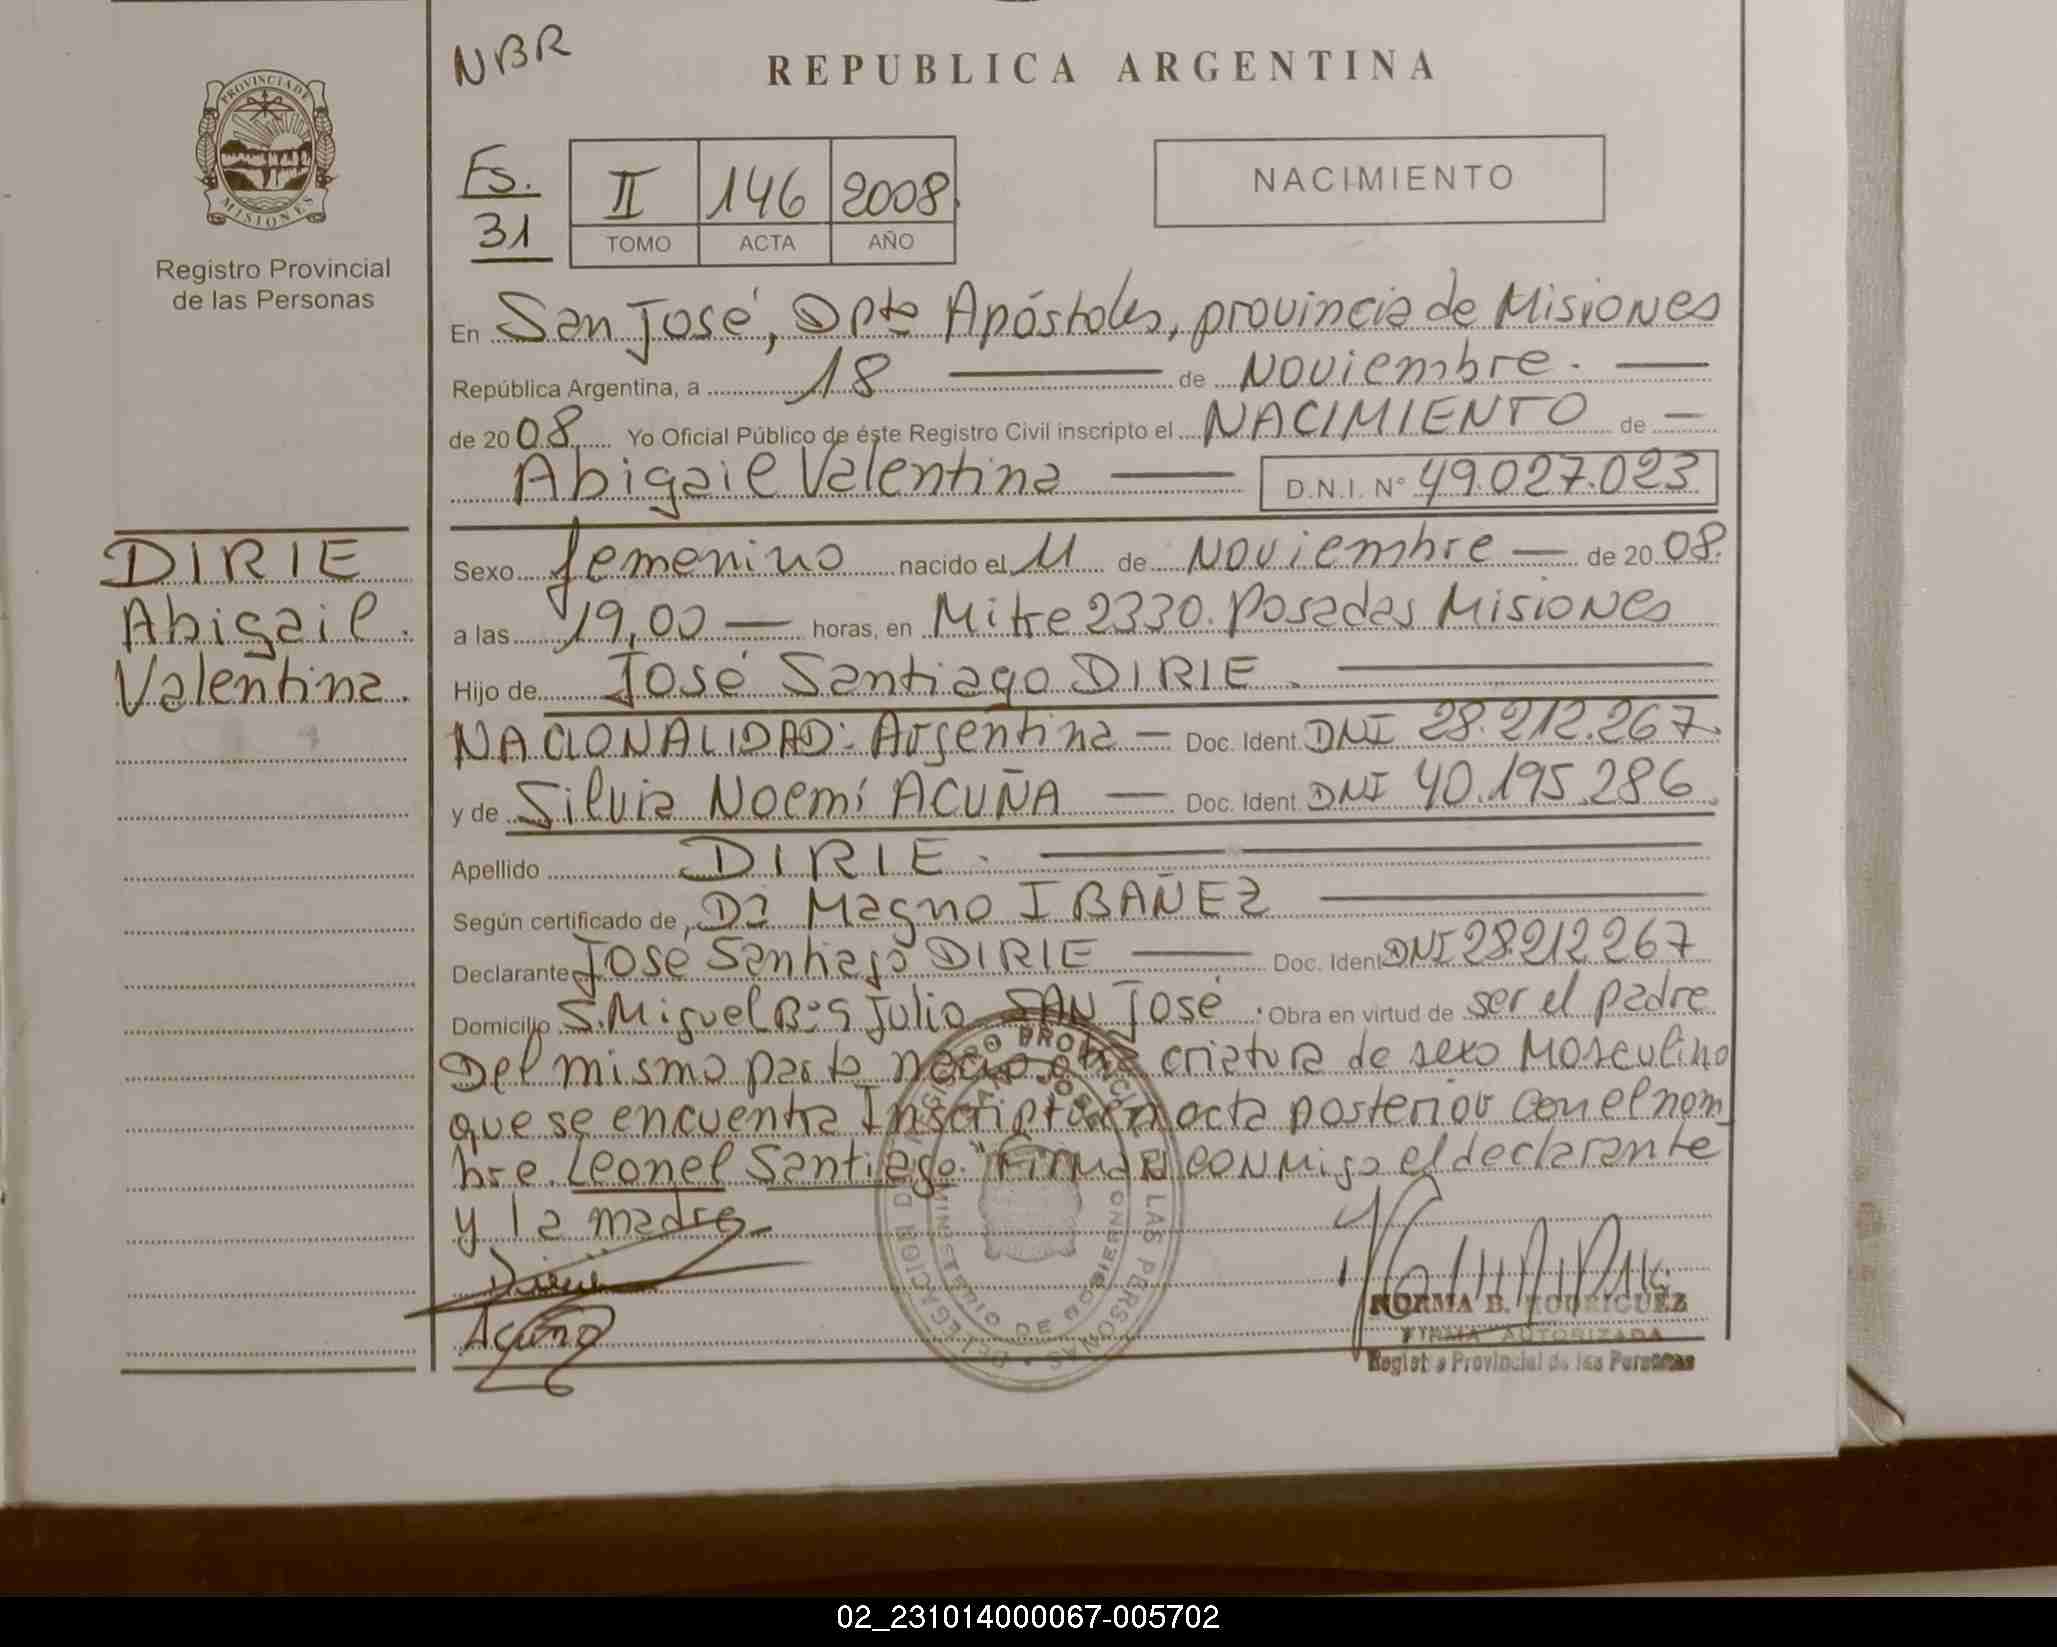 NBR
REPUBLICA ARGENTINA
PROVINCIA DE
MISIONES
Registro Provincial
de las Personas
Fs.
31
II 146 2008
TOMO ACTA AÑO
NACIMIENTO
En San José, Dpto Apóstoles, provincia de Misiones
República Argentina, a 18 de Noviembre.
de 2008 Yo Oficial Público de éste Registro Civil inscripto el NACIMIENTO de
Abigail Valentina D.N.I. N° 49.027.023
DIRIE
Abigail
Valentina.
Sexo femenino nacido el 11 de Noviembre de 2008.
a las 19,00 horas, en Mitre 2330. Posadas Misiones
Hijo de José Santiago DIRIE.
NACIONALIDAD: Argentina Doc. Ident. DNI 28.212.267.
y de Silvia Noemí ACUÑA Doc. Ident. DNI 40.195.286.
Apellido DIRIE.
Según certificado de, Magno IBAÑEZ
Declarante José Santiago DIRIE Doc. Ident DNI 28.212.267
Domicilio S. Miguel B° 9 Julio SAN José. Obra en virtud de ser el padre
Del mismo parto nacio otra criatura de sexo Masculino
que se encuentra Inscripto en acta posterior con el nom
bre Leonel Santiago." Firman conmigo el declarante
y la madre.
Dirie
Acuña
NORMA B. RODRIGUEZ
FIRMA AUTORIZADA
Registro Provincial de las Personas
02_231014000067-005702